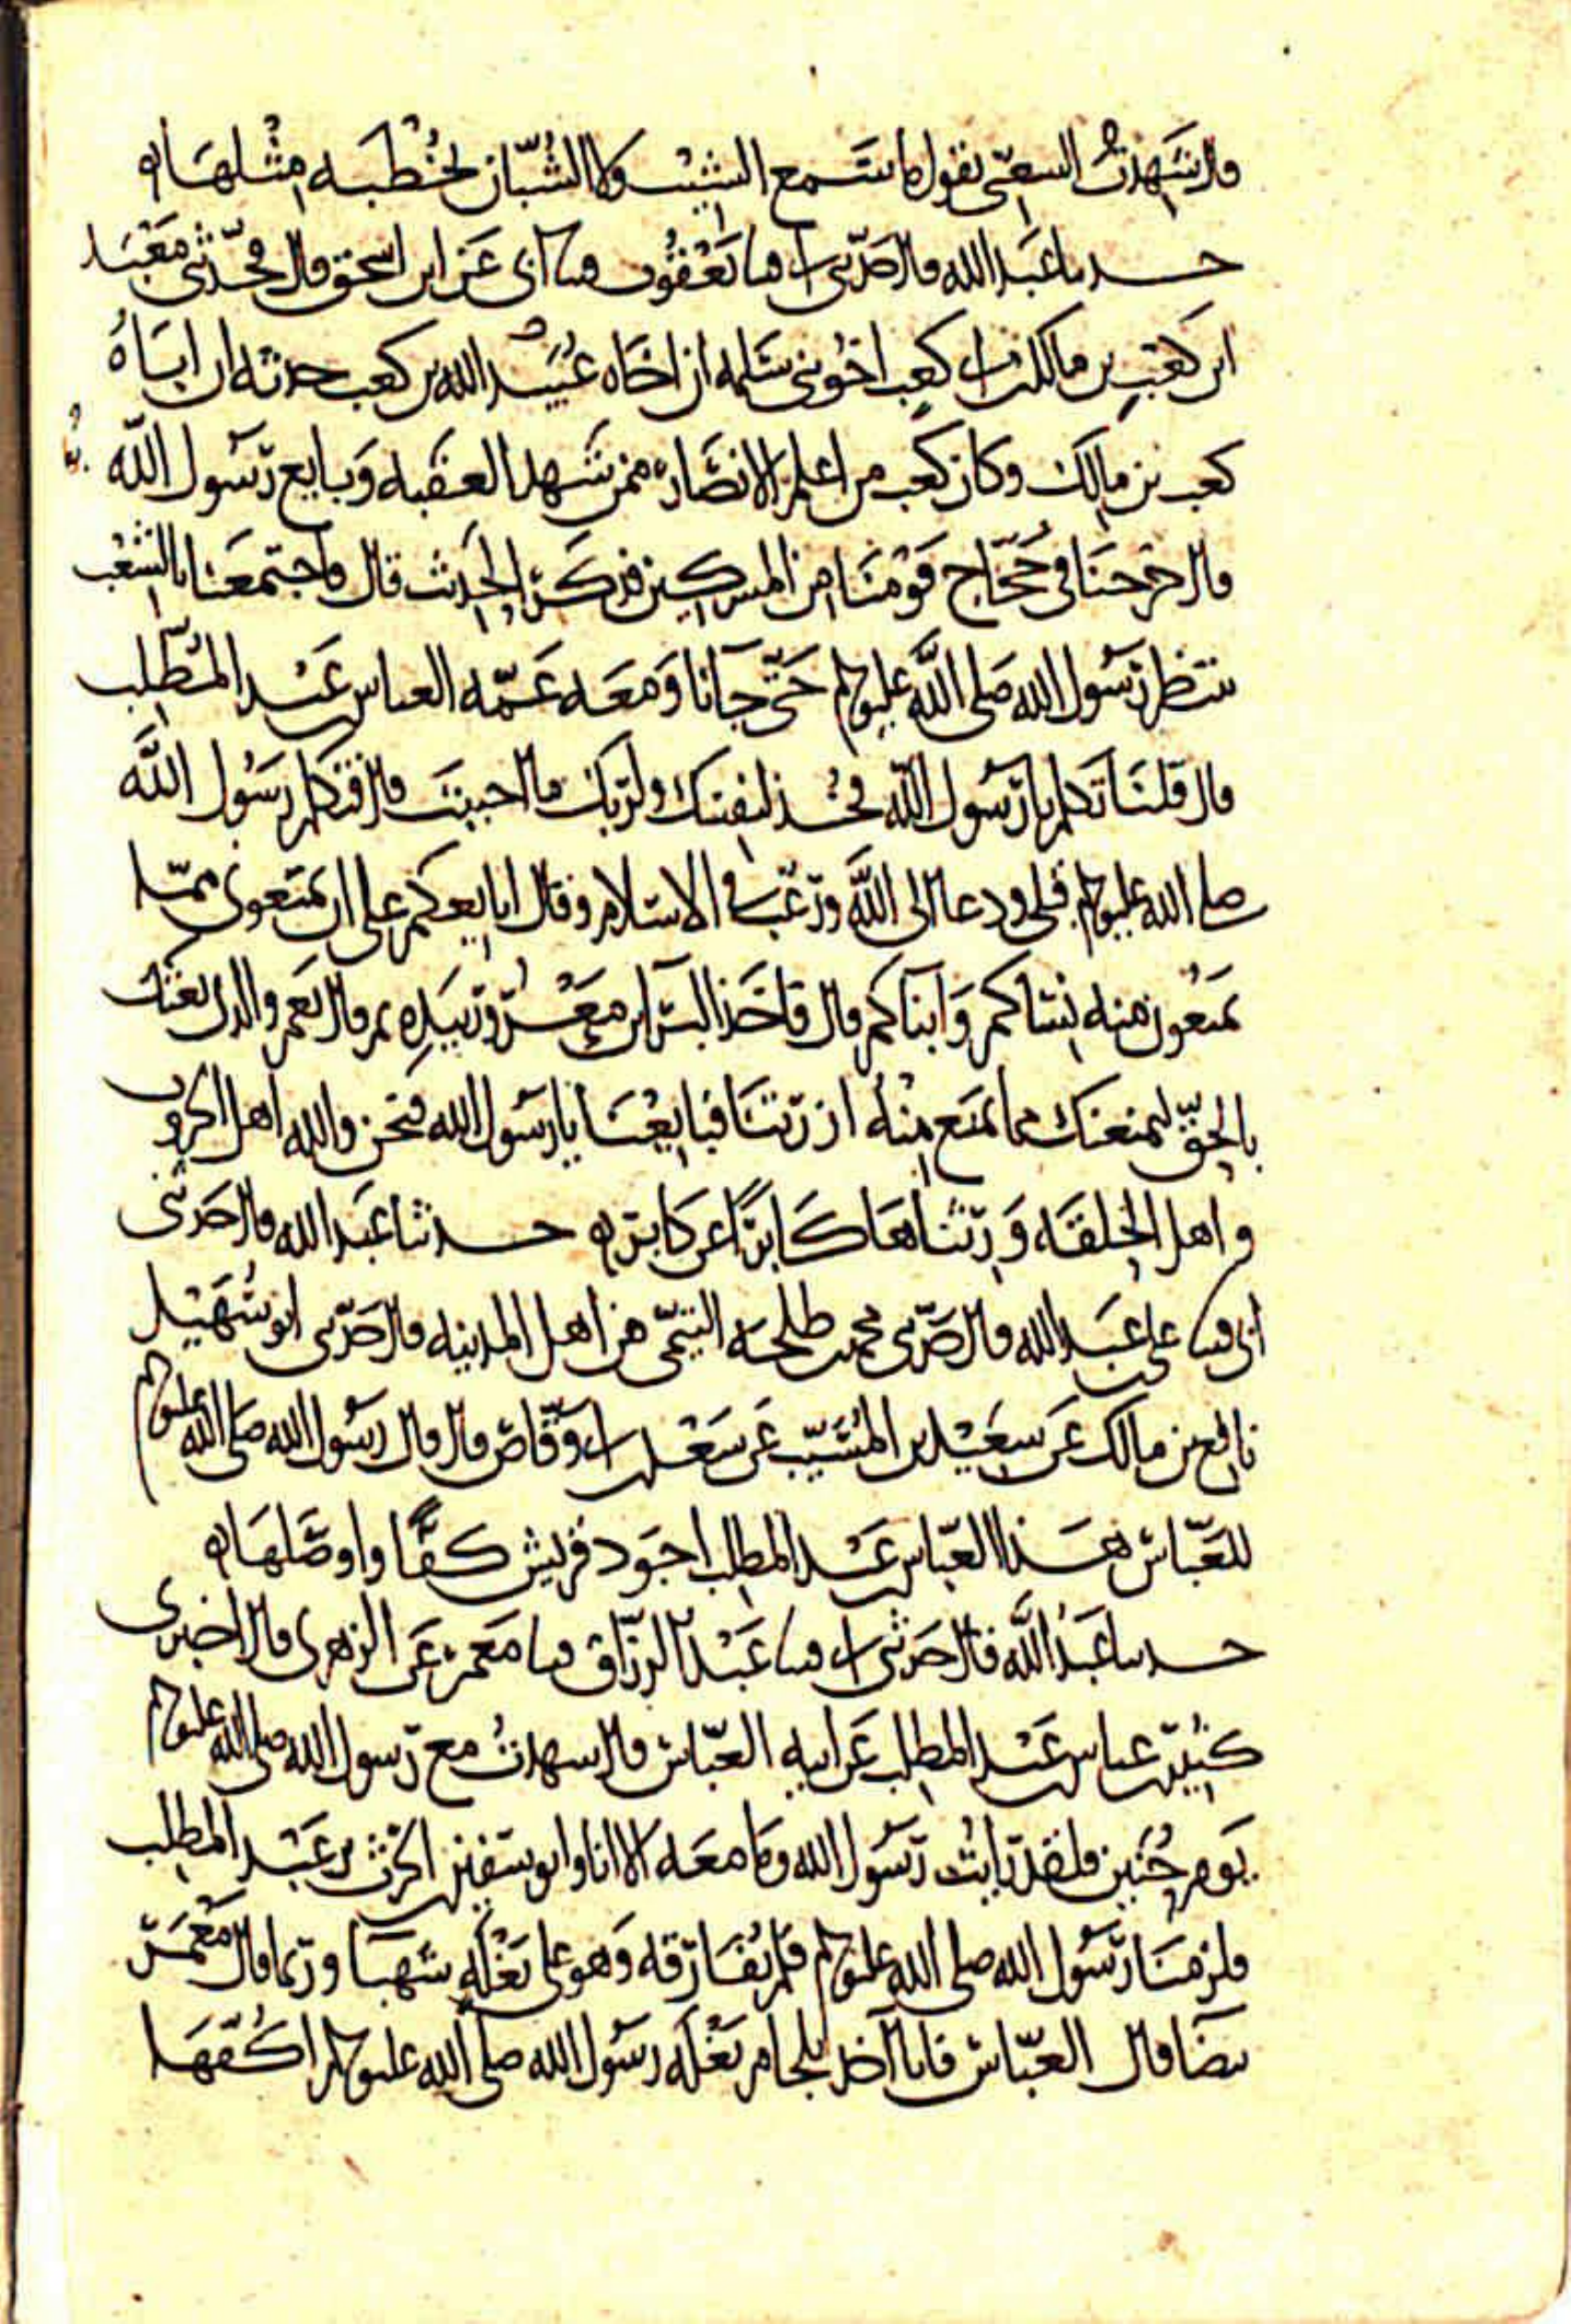 قال شهدت الشعبي يقول ما سمع الشيب ولا الشبان بخطبه مثلها ه
حدثنا عبد الله قال حدثني ابي ثنا يعقوب ثنا ابي عن ابن اسحق قال فحدثني معبد
ابن كعب بن مالك بن ابي كعب اخو بني سلمه ان اخاه عبيد الله بن كعب حدثه ان اباه
كعب بن مالك وكان كعب من اعلم الانصار ممن شهد العقبه وبايع رسول الله
قال خرجنا في حجاج قومنا من المشركين فذكر الحديث قال فاجتمعنا بالشعب
ننتظر رسول الله صلى الله عليه وسلم حتى جآنا ومعه عمه العباس بن عبد المطلب
قال قلنا تكلم يا رسول الله فخذ لنفسك ولربك ما احببت قال فتكلم رسول الله
صلى الله عليه وسلم فتلى ودعا الى الله ورغب في الاسلام وقال ابايعكم على ان تمنعوني مما
تمنعون منه نساكم وابناكم قال فاخذ البرا بن معرور بيده ثم قال نعم والذي بعثك
بالحق لنمنعنك مما نمنع منه ازرتنا فبايعنا يا رسول الله فنحن والله اهل الحروب
واهل الحلقه ورثناها كابرًا عن كابر ه حدثنا عبد الله قال حدثني
ابي ثنا علي بن عبد الله قال حدثني محمد بن طلحه التيمي من اهل المدينه قال حدثني ابو سهيل
نافع بن مالك عن سعيد بن المسيب عن سعد بن ابي وقاص قال قال رسول الله صلى الله عليه وسلم
للعباس هذا العباس بن عبد المطلب اجود قريش كفًا واوصلها ه
حدثنا عبد الله قال حدثني ابي ثنا عبد الرزاق ثنا معمر عن الزهري قال اخبرني
كثير بن عباس بن عبد المطلب عن ابيه العباس قال شهدت مع رسول الله صلى الله عليه وسلم
يوم حنين فلقد رايت رسول الله وما معه الا انا وابو سفين بن الحرث بن عبد المطلب
فلزمنا رسول الله صلى الله عليه وسلم فلم نفارقه وهو على بغله شهبا وربما قال معمر
بيضا قال العباس فانا آخذ بلجام بغله رسول الله صلى الله عليه وسلم اكفها